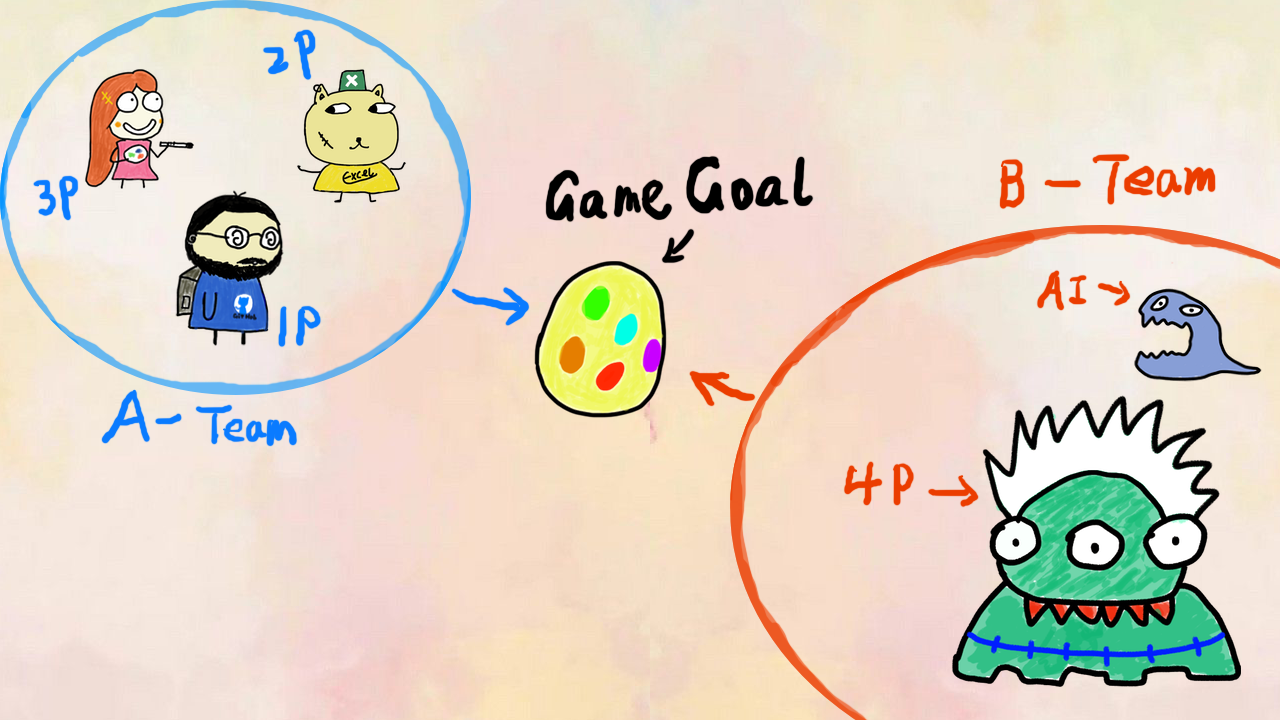 2P
3P
Excel
GitHub
1P
A- Team
Game Goal
B - Team
AI
4P